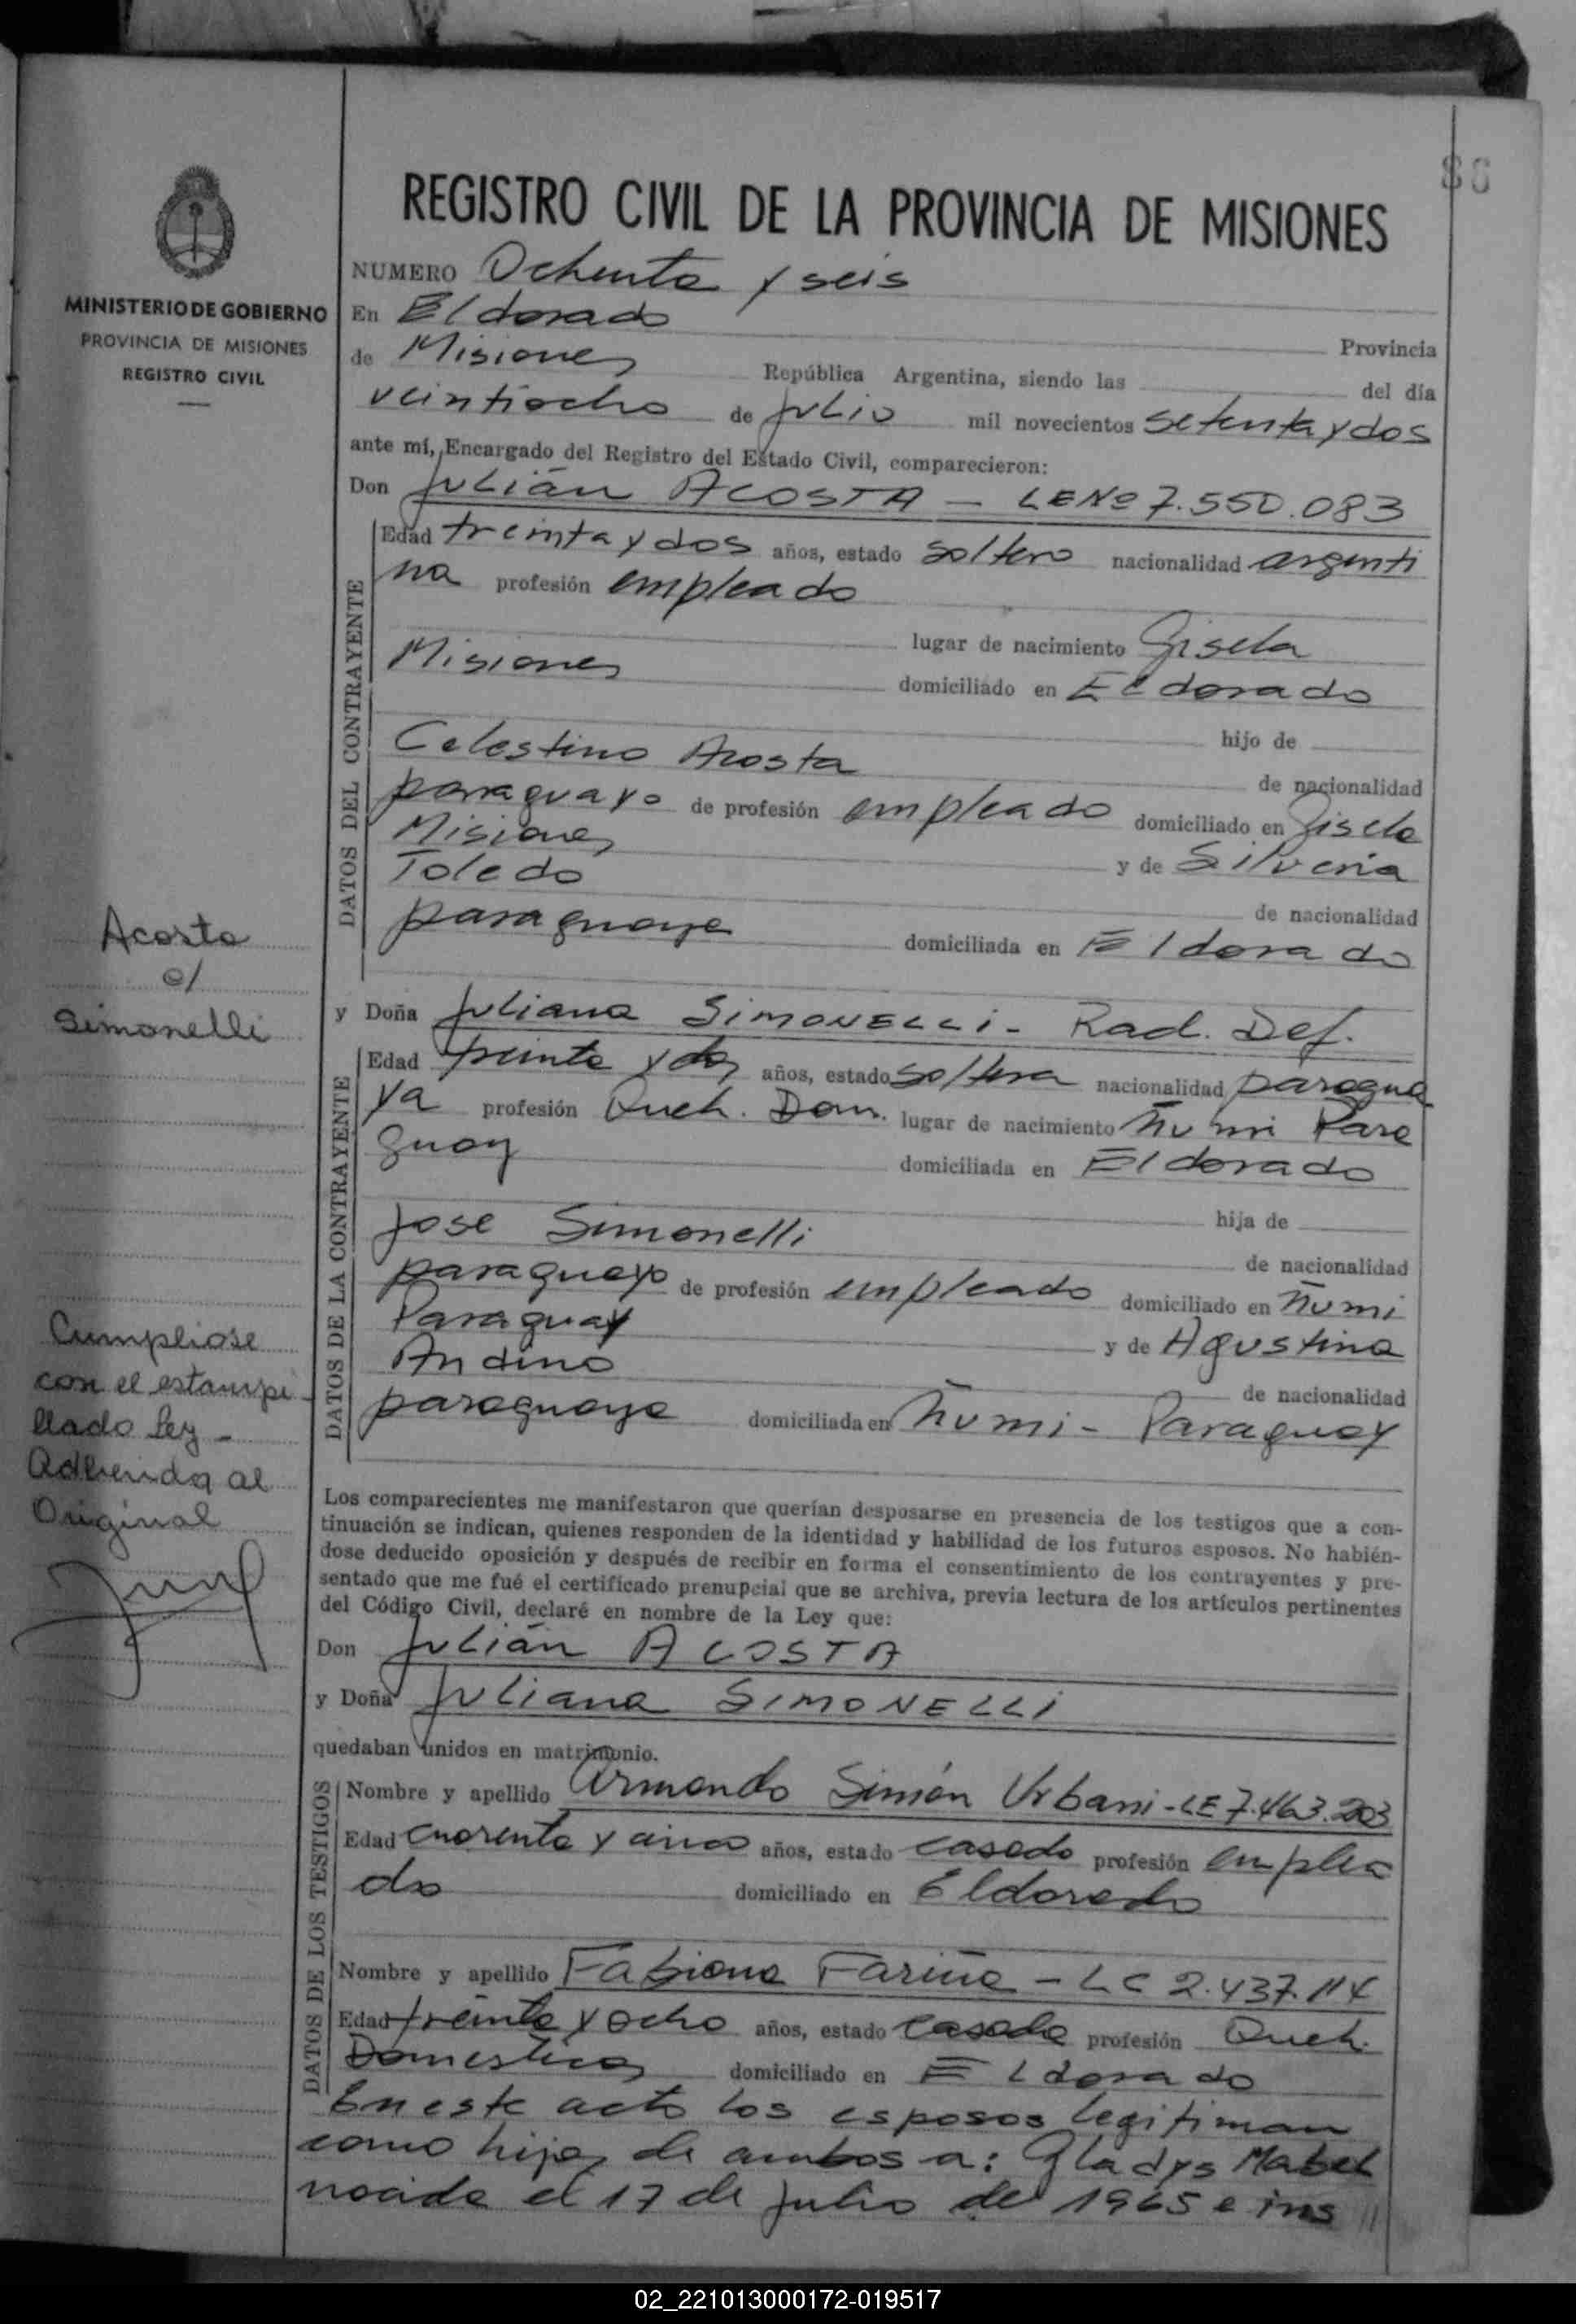 86
REGISTRO CIVIL DE LA PROVINCIA DE MISIONES
MINISTERIO DE GOBIERNO
PROVINCIA DE MISIONES
REGISTRO CIVIL
NUMERO Ochenta y seis
En Eldorado
Provincia
de Misiones República Argentina, siendo las del día
veintiocho de julio mil novecientos setenta y dos
ante mí, Encargado del Registro del Estado Civil, comparecieron:
Don Julián ACOSTA - LE Nº 7.550.083
DATOS DEL CONTRAYENTE
Edad treinta y dos años, estado soltero nacionalidad argenti
na profesión empleado
lugar de nacimiento Gisela
Misiones
domiciliado en Eldorado
hijo de
Celestino Acosta
de nacionalidad
paraguayo de profesión empleado domiciliado en Gisela
Misiones y de Silveria
Toledo
de nacionalidad
paraguaya domiciliada en Eldorado
Acosta
c/
Simonelli
y Doña Juliana SIMONELLI - Rad. Def.
DATOS DE LA CONTRAYENTE
Edad treinta y dos años, estado soltera nacionalidad paragua
ya profesión Queh. Dom. lugar de nacimiento Ñumi Para
guay domiciliada en Eldorado
hija de
Jose Simonelli
de nacionalidad
paraguayo de profesión empleado domiciliado en Ñumi
Paraguay y de Agustina
Andino
de nacionalidad
paraguaya domiciliada en Ñumi - Paraguay
Cumpliose
con el estampi
llado ley -
Adherida al
Original
Los comparecientes me manifestaron que querían desposarse en presencia de los testigos que a con-
tinuación se indican, quienes responden de la identidad y habilidad de los futuros esposos. No habién-
dose deducido oposición y después de recibir en forma el consentimiento de los contrayentes y pre-
sentado que me fué el certificado prenupcial que se archiva, previa lectura de los artículos pertinentes
del Código Civil, declaré en nombre de la Ley que:
Don Julián ACOSTA
y Doña Juliana SIMONELLI
quedaban unidos en matrimonio.
DATOS DE LOS TESTIGOS
Nombre y apellido Armando Simón Urbani - LE 7.463.203
Edad cuarenta y cinco años, estado casado profesión emplea
do domiciliado en Eldorado
Nombre y apellido Fabiana Fariña - LC 2.437.114
Edad treinta y ocho años, estado casada profesión Queh.
Domesticos domiciliado en Eldorado
En este acto los esposos legitiman
como hijos de ambos a: Gladys Mabel
nacida el 17 de julio de 1965 e ins //
02_221013000172-019517